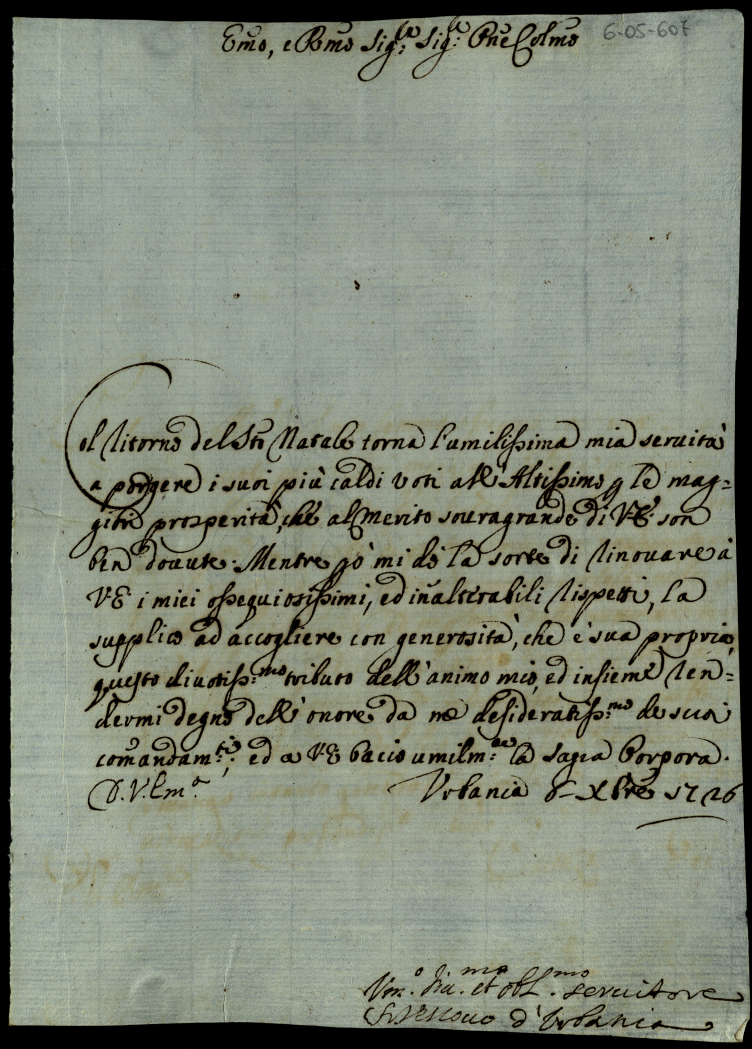 Emo, e Rmo Sig.r Sig.r Pne Colmo 6-05-607
Il ritorno del Sto Natale torna l'umilissima mia servità
a porgere i suoi più caldi voti all'Altissimo p le mag=
giori prosperità, che al merito sovragrande di VE son
ben dovute. Mentre pò mi dò la sorte di rinovare à
VE i miei ossequiosissimi, ed inalterabili rispetti, la
supplico ad accogliere con generosità, che è sua propria,
questo divotiss.mo tributo dell'animo mio, ed insieme ren=
dermi degno dell'onore da me desideratiss.mo de suoi
comandam.ti; ed a VE bacio umilm.te la sagra Porpora.
D. V. Em.a Urbania 8 Xbre 1726
Um.o et obl.mo servitore
d'Urbania